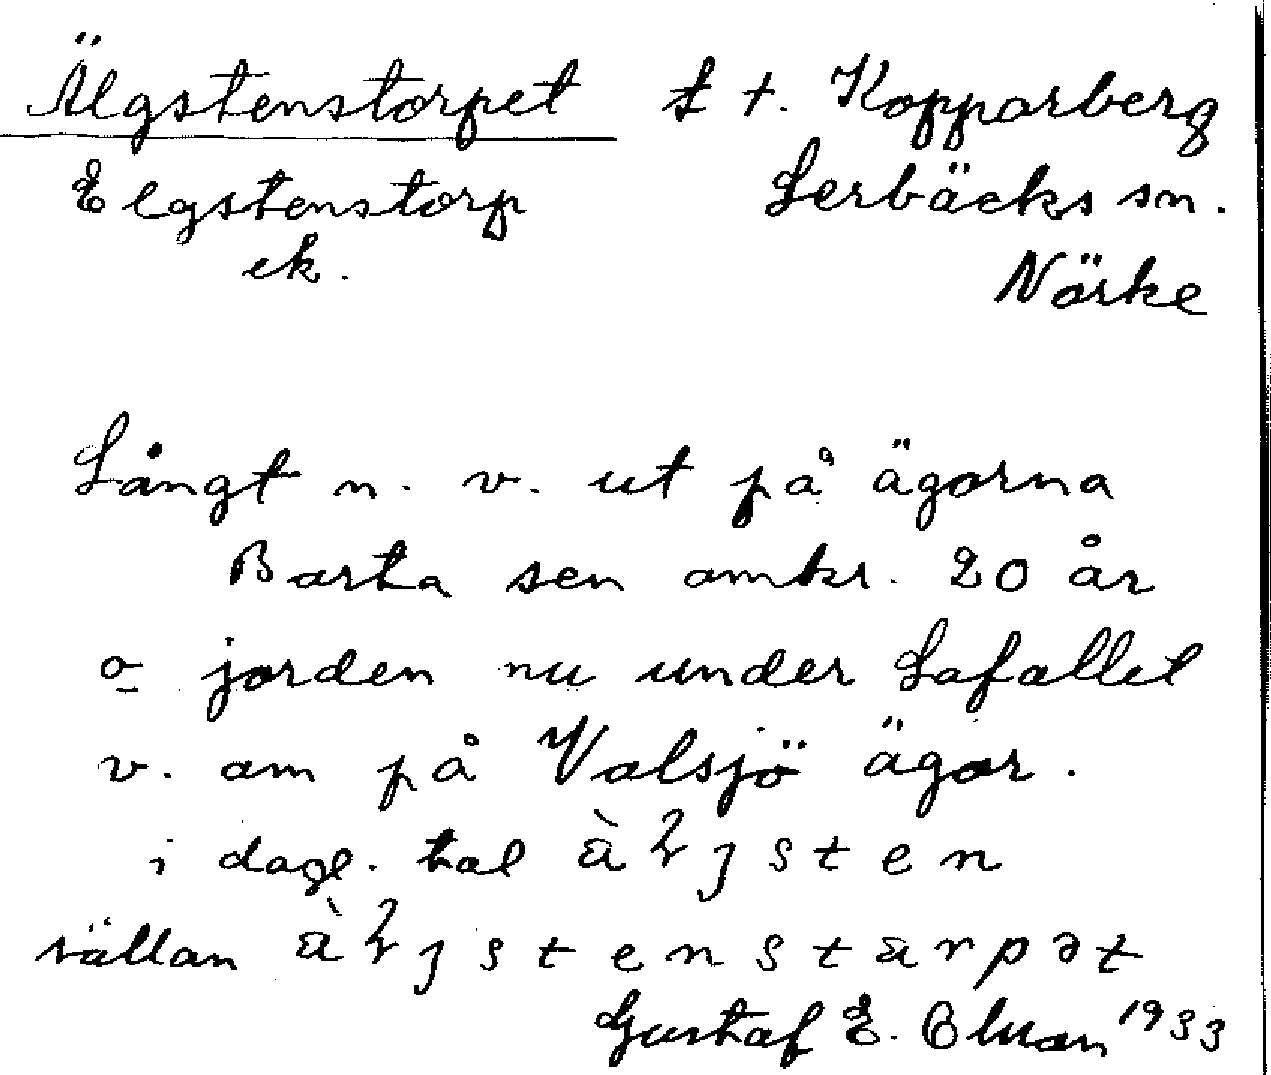 Älgstenstorpet t t. Kopparberg
Elgstenstorp Lerbäcks sn.
ek. Närke
Långt n. v. ut på ägorna
Borta sen omkr. 20 år
o jorden nu under Lafallet
v. om på Valsjö ägor.
i dagl. tal
sällan
Gustaf E. 1933